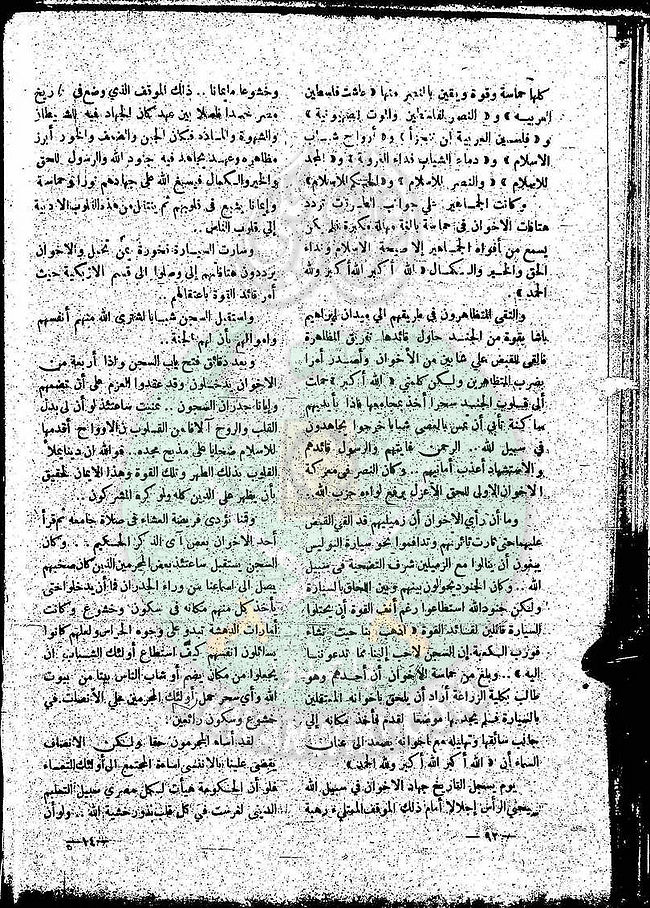 كلها حماسة وقوة ويقين بالنصر منها « عاشت فلسطين
العربية » و « النصر لفلسطين والموت للصهيونية »
و « فلسطين العربية لن تتجزأ » و « أرواح شباب
الاسلام » و « دماء الشباب فداء العروبة » و « المجد
للاسلام » و « والنصر للاسلام » و « الحكم للاسلام »
وكانت الجماهير على جوانب الطرقات تردد
هتافات الاخوان في حماسة بالغة مهللة مكبرة فلم يكن
يسمع من أفواه الجماهير إلا صيحة الاسلام ونداء
الحق والخير والكمال « الله أكبر الله أكبر ولله
الحمد » .
والتقى المتظاهرون في طريقهم الي ميدان ابراهيم
باشا بقوة من الجند حاول قائدها تفريق المظاهرة
فالقى للقبض علي شابين من الأخوان وأصدر أمرا
بضرب المتظاهرين ولكن كلمتي « الله أكبر » حملت
ألى قلوب الجند سحرا أخذ بمجامعها فاذا بأيديهم
ساكنة تأبي أن تمس بالعصى شبابا خرجوا يجاهدون
في سبيل الله .. الرحمن غايتهم والرسول قائدهم
والاستشهاد أعذب أمانيهم .. وكان النصر في معركة
الاخوان الاولى للحق الأعزل يرفع لواءه حزب الله ..
وما أن رأي الاخوان أن زميليهم قد القي القبض
عليهما حتى ثارت ثائرتهم وتدافعوا نحو سيارة البوليس
يبغون أن ينالوا مع الزميلين شرف التضحية في سبيل
الله .. وكان الجنود يحولون بينهم وبين اللحاق بالسيارة
ولكن جنود الله استطاعوا رغم أنف القوة أن يحتلوا
السيارة قائلين لقائد القوة « اذهب بنا حيث تشاء
فورب الكعبة إن السجن لأحب إلينا مما تدعوننا
اليه » .. وبلغ من حماسة الأخوان أن أحدهم وهو
طالب بكلية الزراعة أراد أن يلحق باخوانه المعتقلين
بالسيارة فلم يجد بها موضعا لقدم فأخذ مكانه إلى
جانب سائقها وتهليله مع اخوانه يصعد الى عنان
السماء أن « الله أكبر الله أكبر ولله الحمد »
يوم يسجل التاريخ جهاد الاخوان في سبيل الله
يحني الرأس إجلالا أمام ذلك الموقف الممتليء رهبة
— ٩٣ —
وخشوعا وايمانا .. ذلك الموقف الذي وضع في تاريخ
مصر حدا فاصلا بين عهد كان الجهاد فيه للشيطان
والشهوة والمادة فكان الجبن والضعف والخور أبرز
مظاهره وعهد يجاهد فيه جنود الله والرسول للحق
والخير والكمال فيسبغ الله على جهادهم نورا وحماسة
وإيمانا يشيع في قلوبهم ثم ينتقل من هذه القلوب
إلى قلوب الناس ..
وسارت السيارة فخورة بمن تحمل والاخوان
يرددون هتافاتهم إلى وصلوا الى قسم الازبكية حيث
أمر قائد القوة باعتقالهم ..
واستقبل السجن شبابا اشترى الله منهم أنفسهم
واموالهم بأن لهم الجنة ..
وبعد دقائق فتح باب السجن واذا أربعة من
الاخوان يدخلون وقد عقدوا العزم على أن تضمهم
وايانا جدران السجون .. تمنيت ساعتئذ لو أن لى بدل
القلب والروح آلافا من القلوب والارواح أقدمها
للاسلام ضحايا على مذبح مجده .. فوالله ان دينا يملأ
القلوب بذلك الطهر وتلك القوة وهذا الايمان لخليق
بأن يظهر على الدين كله ولو كره المشركون ..
وقمنا نؤدى فريضة العشاء فى صلاة جامعة ثم قرأ
أحد الاخوان بعض آى الذكر الحكيم .. وكان
السجن يستقبل ساعتئذ بعض المجرمين الذين كان صخبهم
يصل الى اسماعنا من وراء الجدران فما أن يدخلوا حتى
يأخذ كل منهم مكانه فى سكون وخشوع وكانت
أمارات الدهشة تبدو على وجوه الحراس ولعلهم كانوا
يسائلون أنفسهم كيف استطاع أولئك الشباب أن
يحيلوا من مكان يضم أوشاب الناس بيتا من بيوت
الله وأى سحر حمل أولئك المجرمين على الانصات في
خشوع وسكون رائعين .
لقد أساء المجرمون حقا ولكن الانصاف
يقضى علينا بالاننسى اساءة المجتمع الى أولئك التعساء
فلو أن الحكومة هيأت لكل مصرى سبيل التعليم
الدينى لغرست في كل قلب بذور خشية الله .. ولو أن
— ١٤ —